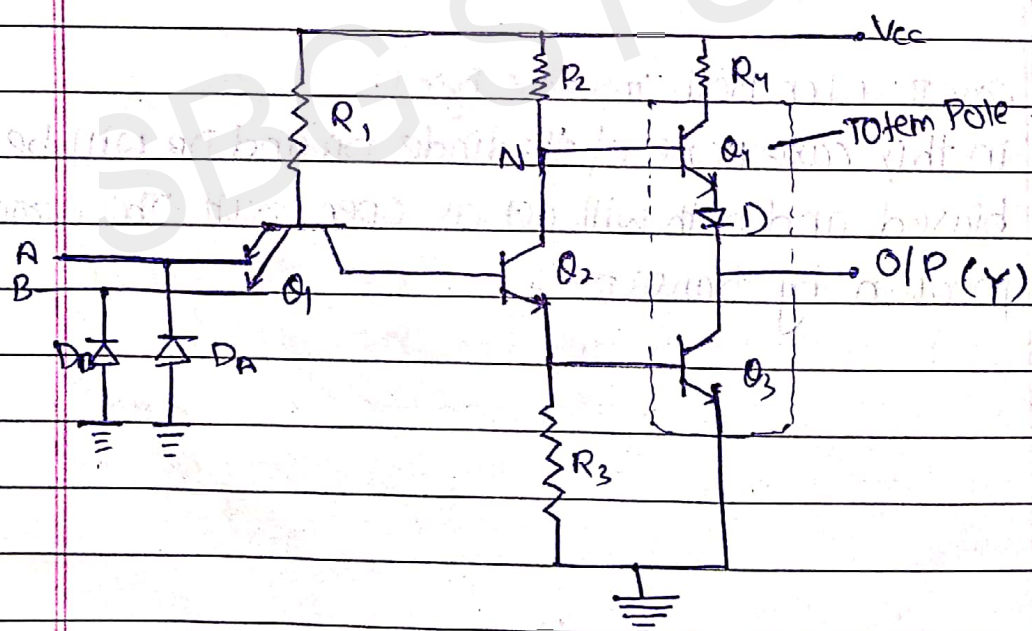 SBG ST
Vcc
R1
R2
R4
N
Q4
Totem Pole
D
A
B
Q1
Q2
O/P (Y)
DB
DA
Q3
R3